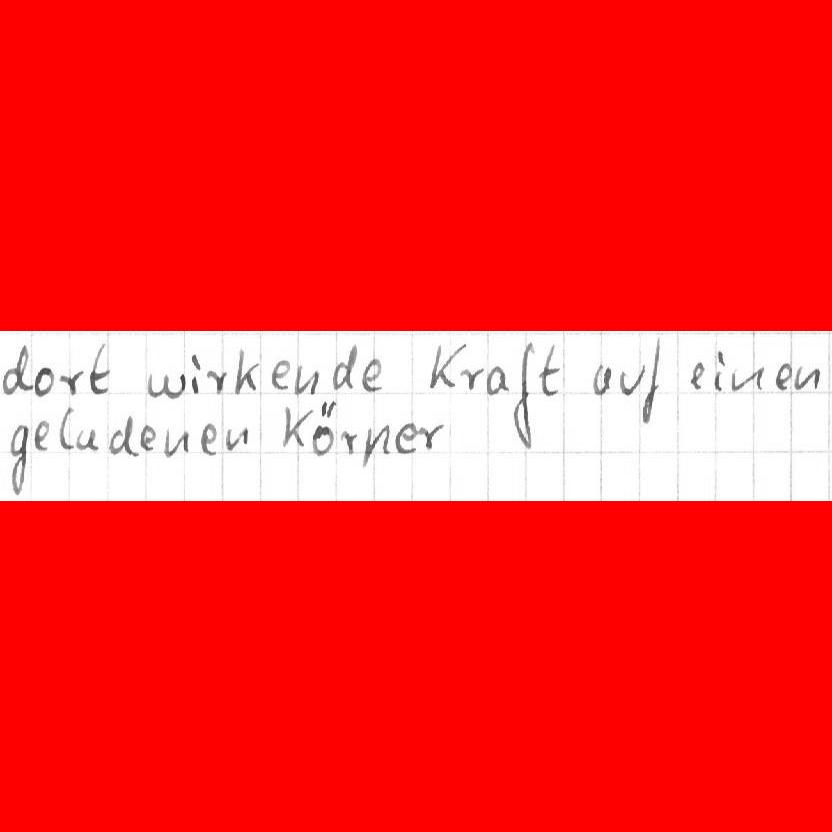 dort wirkende Kraft auf einen
geladenen Körper